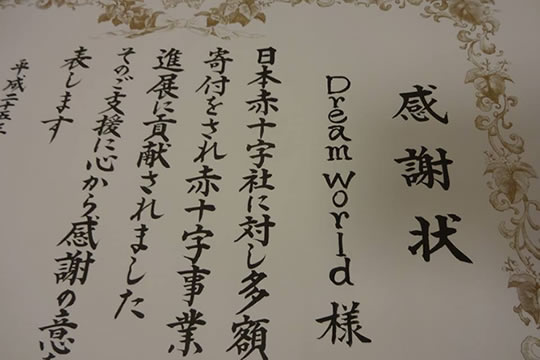 感謝状
Dream World 様
日本赤十字社に対し多額
寄付をされ赤十字事業
進展に貢献されました
そのご支援に心から感謝の意を
表します
平成二十五